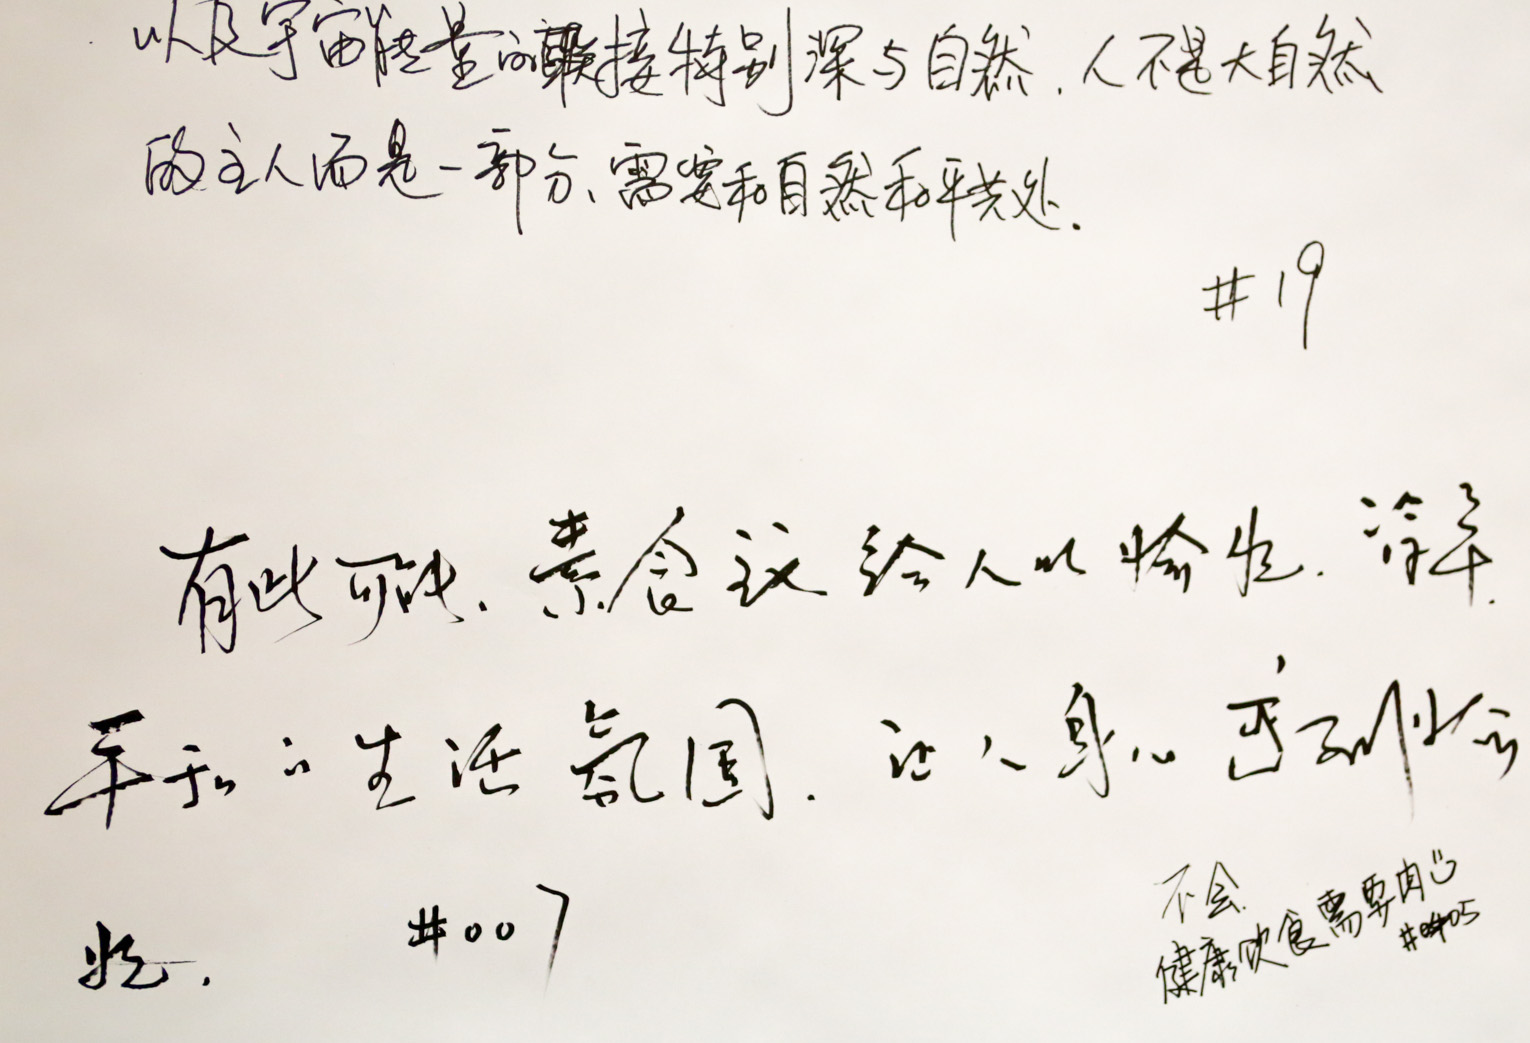 以及宇宙能量的联接特别深与自然.人不是大自然
的主人而是一部分、需要和自然和平共处.
#19
有此可能、素食让给人以愉悦.
平和的生活氛围.让人身心
#007
不会.
健康饮食需要肉